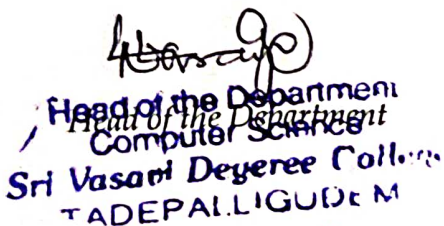 Head of the Department
Head of the Department
Computer Science
Sri Vasavi Degeree College
TADEPALLIGUDEM